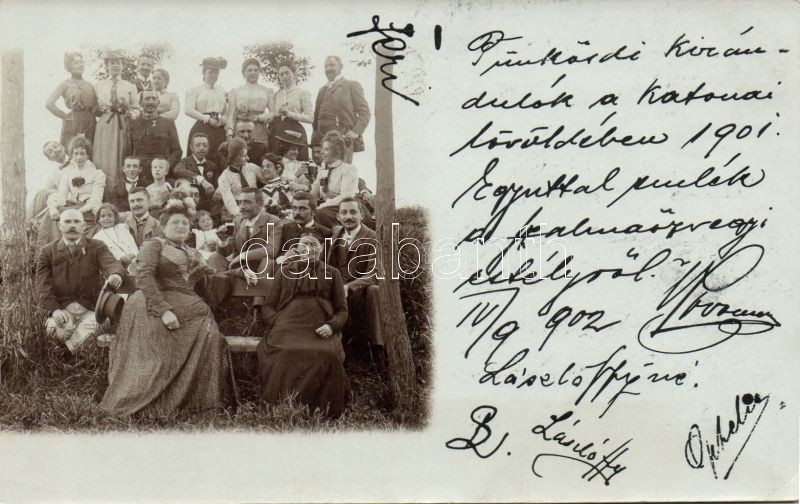 Jenő
Pünkösdi kirán-
dulók a katonai
lövöldében 1901.
Egyuttal emlék
a szalmaözvegyi
estélyről.
IV/9 902
Lászlóffyné.
B. Lászlóffy
Ophelia
darabanth